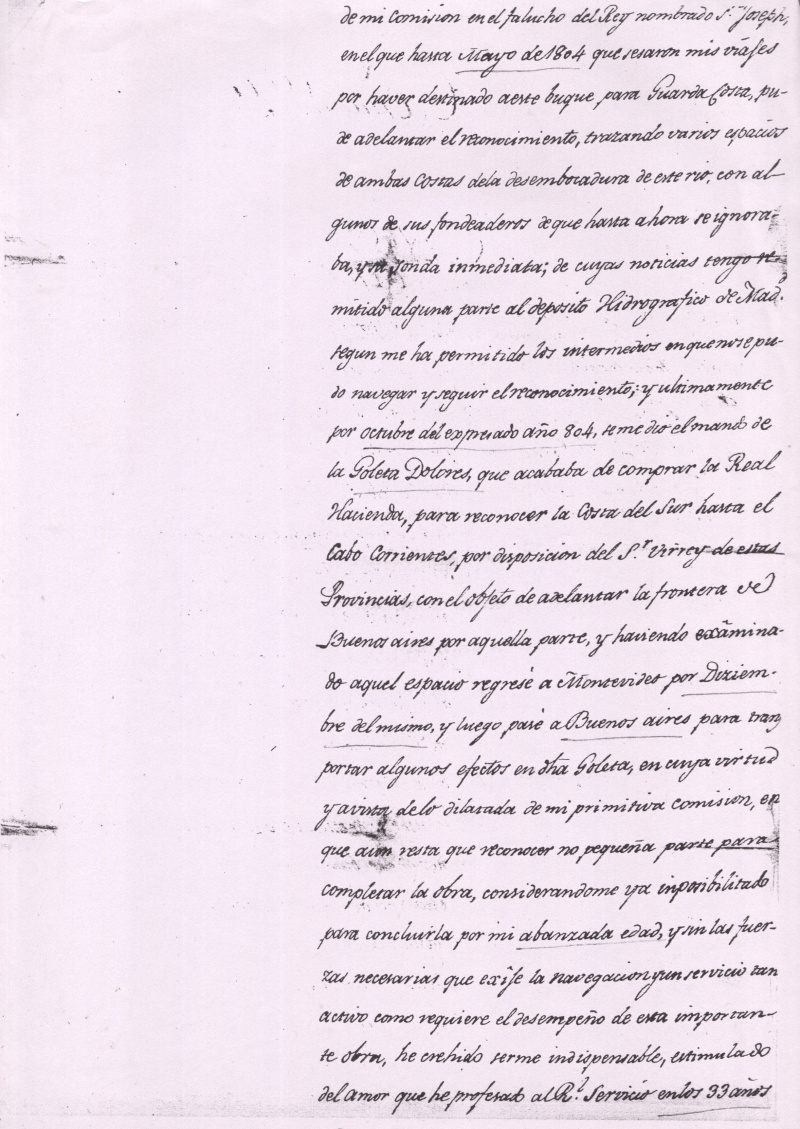 de mi Comision en el falucho del Rey nombrado S.n Joseph,
en el que hasta Mayo de 1804 que sesaron mis viájes
por haver destinado aeste buque, para Guarda Costa, pu-
de adelantar el reconocimiento, trazando varios espacios
de ambas Costas dela desembocadura de este rio, con al-
gunos de sus fondeaderos de que hasta ahora se ignora-
ba, y su sonda inmediata; de cuyas noticias tengo re-
mitido alguna parte al deposito Hidrografico de Mad.
segun me ha permitido los intermedios en que nose pu-
do navegar y seguir el reconocimiento; y ultimamente
por octubre del expresado año 804, se me dio el mando de
la Goleta Dolores, que acababa de comprar la Real
Hacienda, para reconocer la Costa del Sur hasta el
Cabo Corrientes, por disposicion del S.r Virrey de estas
Provincias, con el objeto de adelantar la frontera de
Buenos aires por aquella parte, y haviendo exâmina-
do aquel espacio regresé a Montevideo por Diziem-
bre del mismo, y luego pasé a Buenos aires para tranz
portar algunos efectos en dha Goleta, en cuya virtud
y avista delo dilatada de mi primitiva comision, en
que aún resta que reconocer no pequeña parte para
completar la obra, considerandome ya inposibilitado
para concluirla por mi abanzada edad, y sin las fuer-
zas necesarias que exîje la navegacion y un servicio tan
activo como requiere el desempeño de esta importan-
te obra, he crehido serme indispensable, estimulado
del amor que he profesado al R.l Servicio en los 33 años